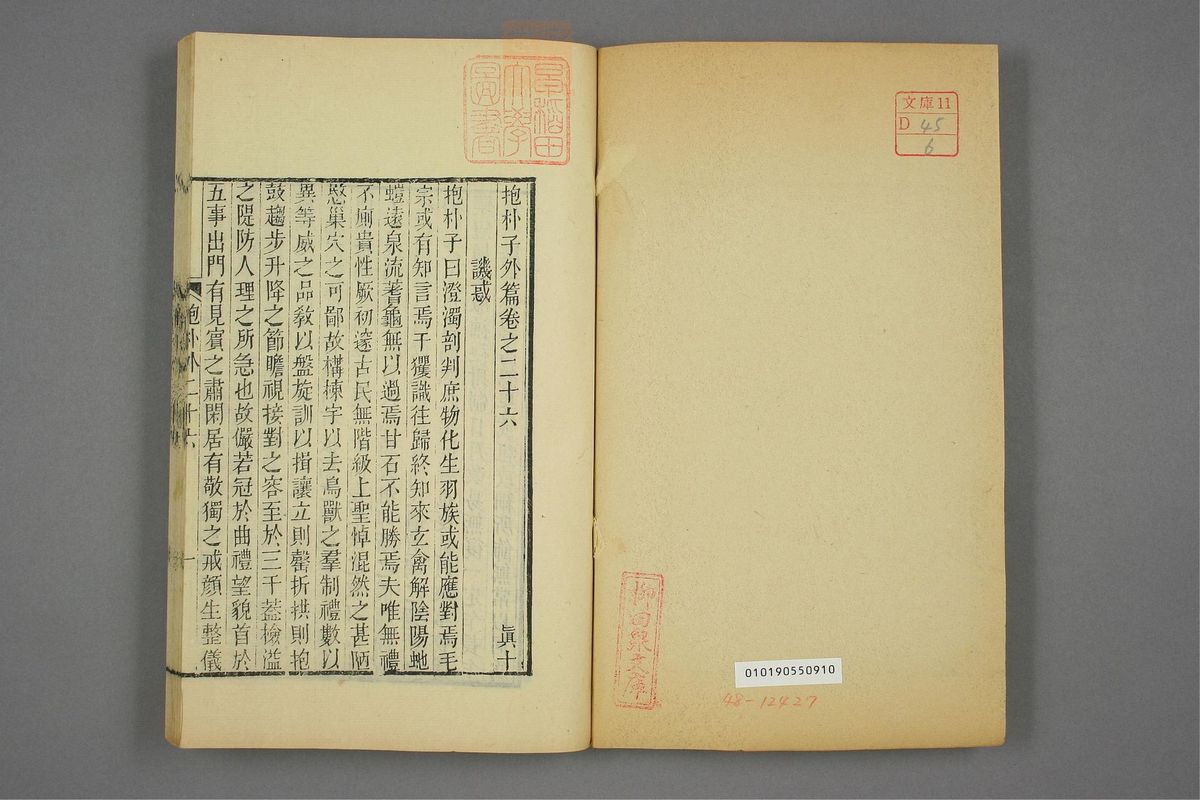 文庫11
D 45
6
柳田泉文庫
010190550910
48-12427
早稲田
大學
圖書
抱朴子外篇卷之二十六 眞十
譏惑
抱朴子曰澄濁剖判庶物化生羽族或能應對焉毛
宗或有知言焉干玃識往歸終知來玄禽解陰陽虵
螘遠泉流蓍龜無以過焉甘石不能勝焉夫唯無禮
不廁貴性厥初邃古民無階級上聖悼混然之甚陋
愍巢穴之可鄙故構棟宇以去鳥獸之羣制禮數以
異等威之品敎以盤旋訓以揖讓立則磬折拱則抱
鼓趨步升降之節瞻視接對之容至於三千葢檢溢
之隄防人理之所急也故儼若冠於曲禮望貌首於
五事出門有見賓之肅閑居有敬獨之戒顏生整儀
抱朴外二十六
一